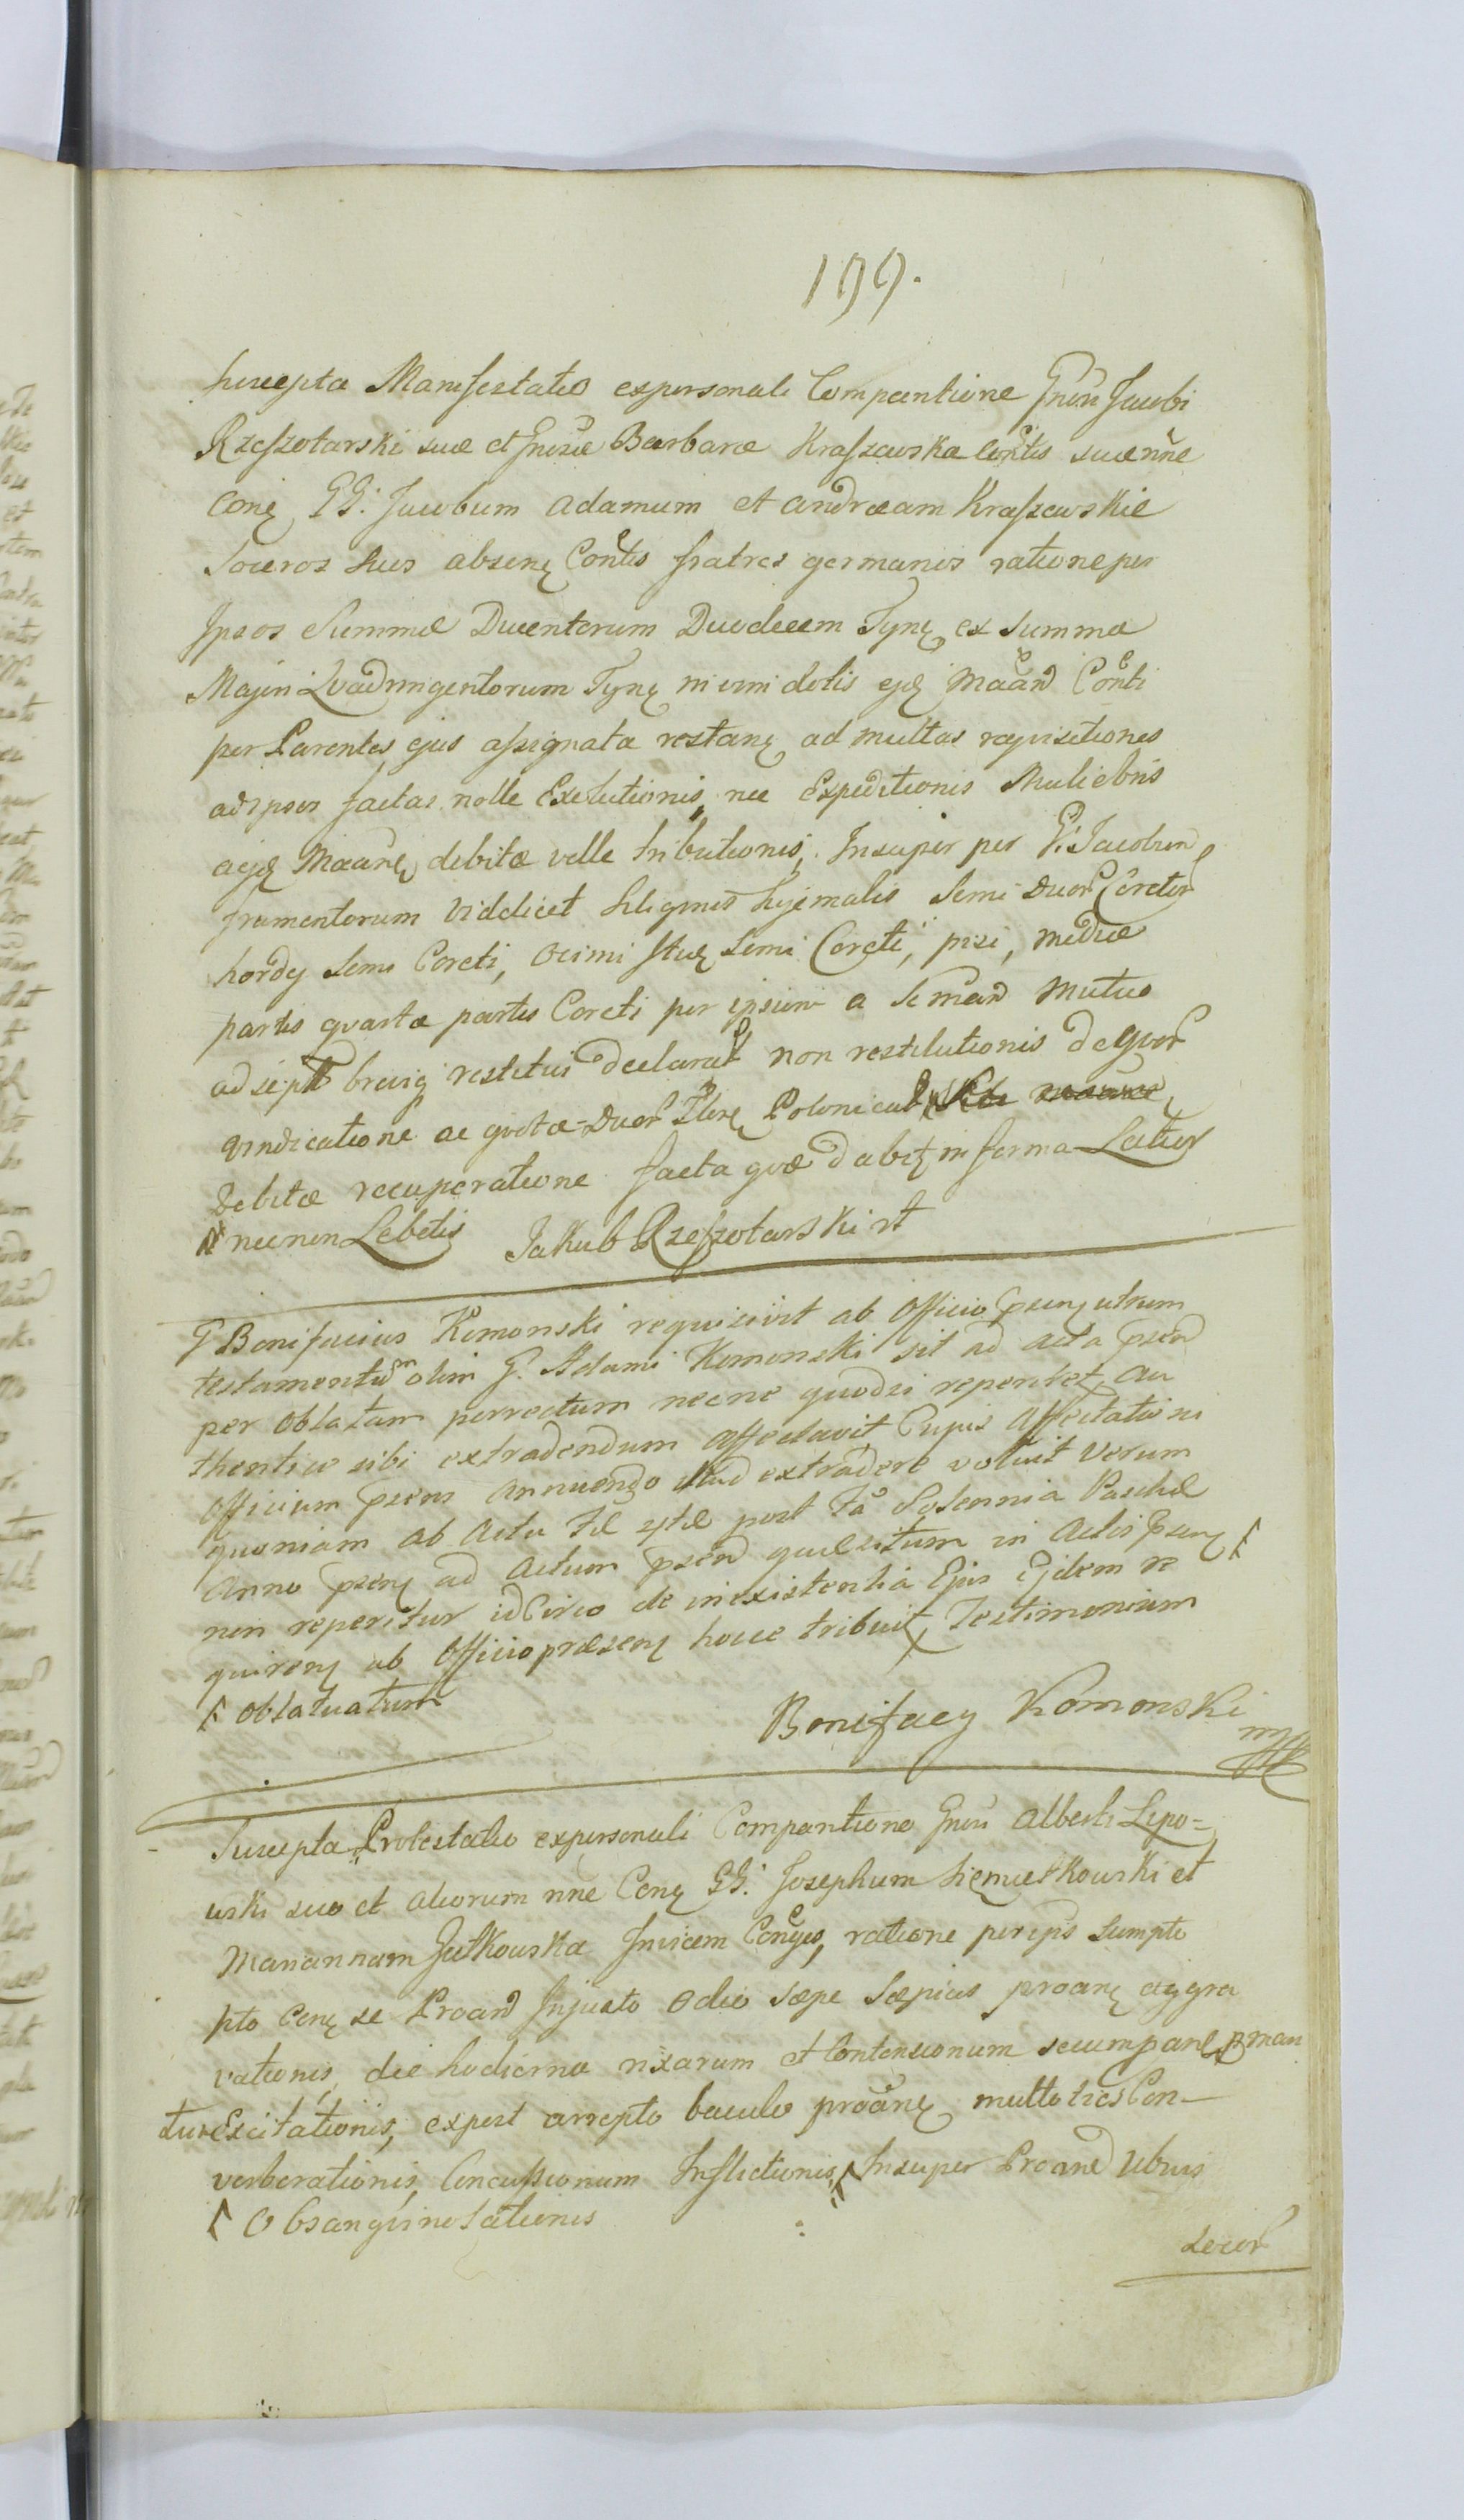 199.
Suscepta Manifestatio ex personali Compantione Gnosi Jacobi
Rzeszotarski suae et Gnosae Barbarae Kraszewska Contis suae nne
Conę GG: Jacobum Adamum et Andraeam Kraszewskie
Soceros suos absenę Contis fratres germanos ratione per
Ipsos Summae Ducentorum Duodecem Tynę ex Summa
Majori Quadringentorum Tynę nomi dotis ejđ Maand Conti
per Parentes ejus assignata restanę ad multas requisitiones
ad ipsos factas nolle Exolutionis, nec Expeditionis Muliebris
aejđ Maanę debitae velle tributionis, Insuper per G: Jacobum
frumentorum videlicet Siliginis hyemalis Semi Duor Coretor
hordej Semi Coreti, Ocimi Semi Coreti, pisi, mediae
partis quartae partis Coreti per ipsum a Se Maand mutuo
ad sept brevię restitui declarat non restitutionis de quor
vindicatione ac quota Duor Flore Polonical
Debitae recuperatione facta quae dabit in forma Latior
necnon Lebetis Jakub Rzeszotarski
G Bonifacius Komonski requisivit ab Officio psenę utrum
testamentum olim G. Adami Komonski sit ad acta psend
per Oblatam porrectum necne quodsi reperibet, au
thentice sibi extradendum affectavit, Cujus Affectationi
Officium psens annuendo illud extradere voluit verum
quoniam ab Actu post Fa Solennia Paschae
Anno psenę ad Actum psend quaesitum in Actis psenę
non reperitur idcirco de inexistentia Ejus Ejdem re
quirenę ab Officio praesenę hocce tribuit, Testimonium
Oblatuatum
Bonifacy Komonski
mpp
Suscepta Protestatio ex personali Compantione Gnosi Alberti Lipo=
uski suo et aliorum nne Conę GG: Josephum et
Mariannam Jutkouska Invicem Conges, ratione per ips sumpto
pto Conę se Proand Injusto Odio saepe saepius proanę aggra
vationis, die hodierna rixarum et Contensionum secum pman
tur Excitationis, expost arrepto baculo proanę multoties Con-
verberationis, Concussionum Inflictionis, Insuper Proand
Obsanguinolationis